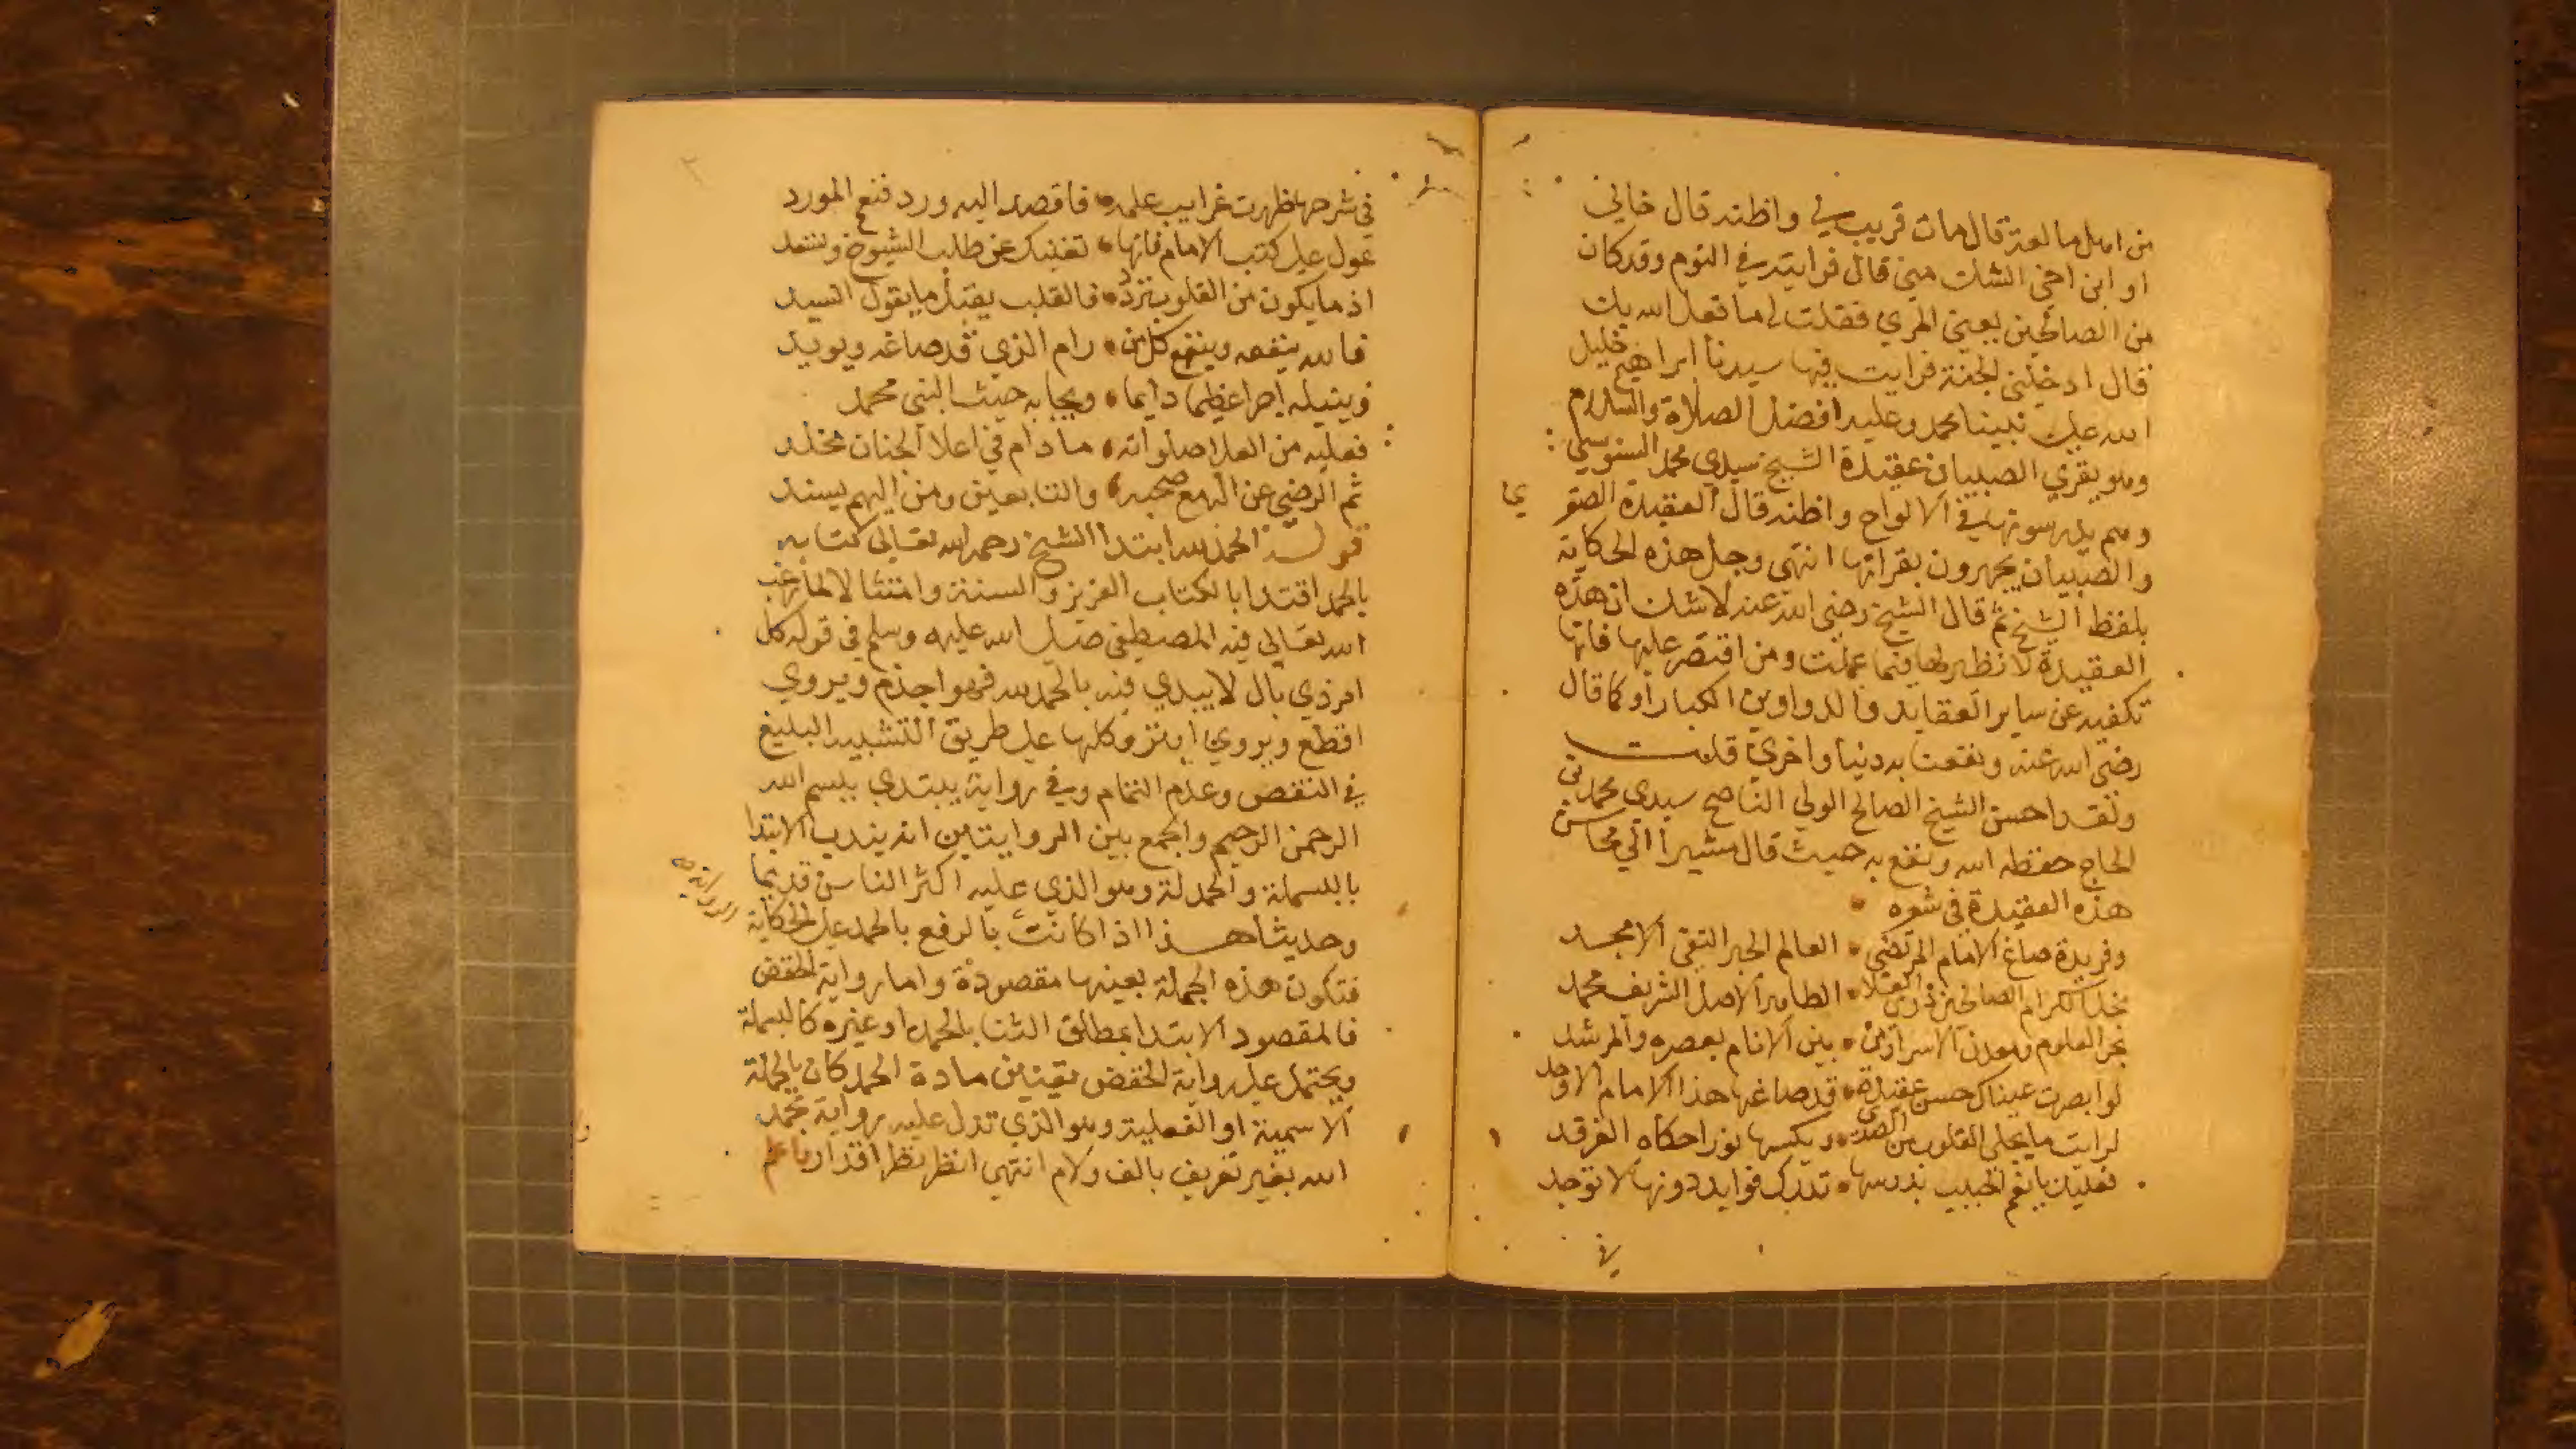 من اهل مالقة قال مات قريب لي واظنه قال خالي
او ابن اخي الشك مني قال فرايته في النوم وقد كان
من الصالحين يعني المري فقلت له ما فعل الله بك
قال ادخلني الجنة فرايت فيها سيدنا ابراهيم خليل
الله على نبينا محمد وعليه افضل الصلاة والسلام
وهو يقري الصبيان عقيدة الشيخ سيدي محمد السنوسي
وهم يدرسونها في الالواح واظنه قال العقيدة الصغرى
والصبيان يجهرون بقراتها انتهى وجل هذه الحكاية
بلفظ الشيخ ثم قال الشيخ رضي الله عنه لا شك ان هذه
العقيدة لا نظير لها فيما علمت ومن اقتصر عليها فانها
تكفيه عن ساير العقايد والدواوين الكبار او كما قال
رضي الله عنه ونفعنا به دنيا واخرى قلت
ولقد احسن الشيخ الصالح الولي الناصح سيدي محمد بن
الحاج حفظه الله ونفع به حيث قال مشيرا الي محاسن
هذه العقيدة في شعره
وفريدة صاغ الامام المرتضي العالم الحبر التقي الامجد
نجل الكرام الصالحين ذوي العلا الطاهر الاصل الشريف محمد
بحر العلوم ومعدن الاسرار من بين الانام بعصره والمرشد
لو ابصرت عيناك حسن عقيدة قد صاغها هذا الامام الاوحد
لرايت ما يجلي القلوب من الصدى ويكسها نورا حكاه الفرقد
فعليك يا نعم الحبيب بدرسها تدرك فوايد دونها لا توجد
في
في شرحها ظهرت غرايب علمه فاقصد اليه ورد فنعم المورد
عول على كتب الامام فانها تغنيك عن طلب الشيوخ وتسعد
اذ ما يكون من القلوب ترده فالقلب يقبل ما يقول السيد
فالله ينفعه وينفع كل من رام الذي قد صاغه ويويد
وينيله اجرا عظيما دايما ويحابه حيث النبي محمد
فعليه من العلا صلواته ما دام في اعلا الجنان مخلد
ثم الرضي عن اله مع صحبه والتابعين ومن اليهم يسند
قوله الحمد لله ابتدا الشيخ رحمه الله تعالى كتابه
بالحمد اقتدا بالكتاب العزيز والسنة وامتثالا لما رغب
الله تعالى فيه المصطفى صلى الله عليه وسلم في قوله كل
امر ذي بال لا يبدي فيه بالحمد لله فهو اجذم ويروي
اقطع ويروي ابتر وكلها على طريق التشبيه البليغ
في النقص وعدم التمام وفي رواية يبتدي ببسم الله
الرحمن الرحيم والجمع بين الروايتين انه يندب الابتدا
بالبسملة والحمدلة وهو الذي عليه اكثر الناس قديما
وحديثا هذا اذا كانت بالرفع بالحمد على الحكاية
فتكون هذه الجملة بعينها مقصودة واما رواية الخفض
فالمقصود الابتدا بمطلق الثنا بالحمد او غيره كالبسملة
ويحتمل على رواية الخفض تعيين مادة الحمد كان بالجملة
الاسمية او الفعلية وهو الذي تدل عليه رواية بحمد
الله بغير تعريف بالف ولام انتهى انظر نظم اقدار